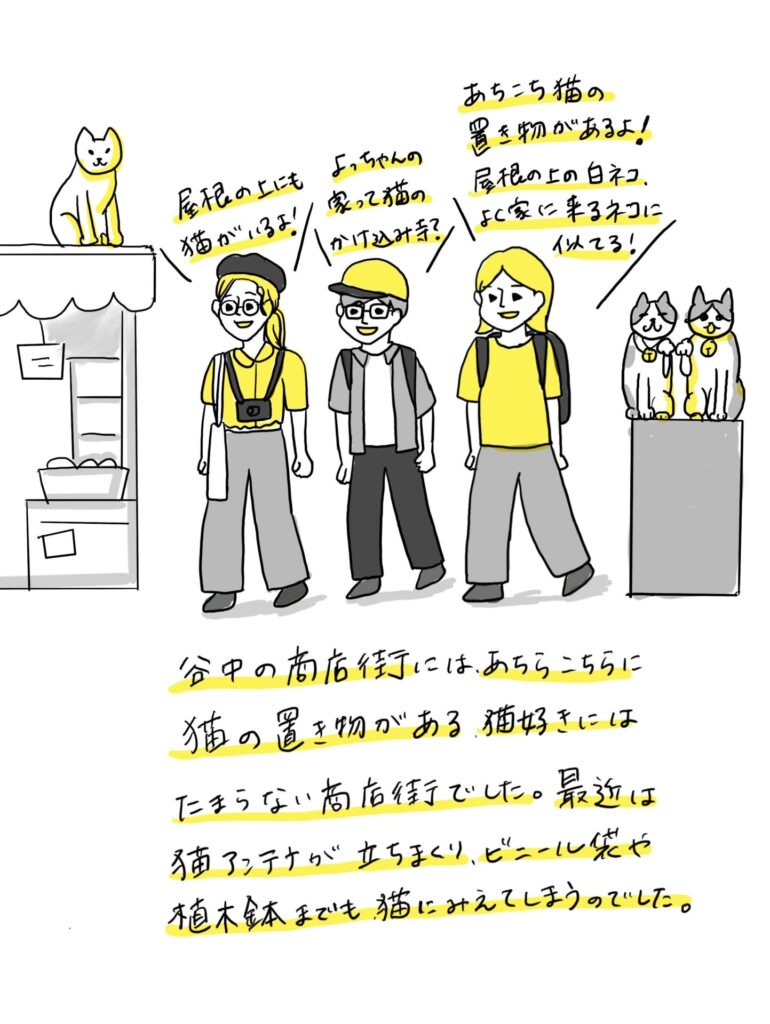 屋根の上にも
猫がいるよ!
よっちゃんの
家って猫の
かけ込み寺?
あちこち猫の
置き物があるよ!
屋根の上の白ネコ、
よく家に来るネコに
似てる!
谷中の商店街には、あちらこちらに
猫の置き物がある、猫好きには
たまらない商店街でした。最近は
猫アンテナが立ちまくり、ビニール袋や
植木鉢までも、猫にみえてしまうのでした。